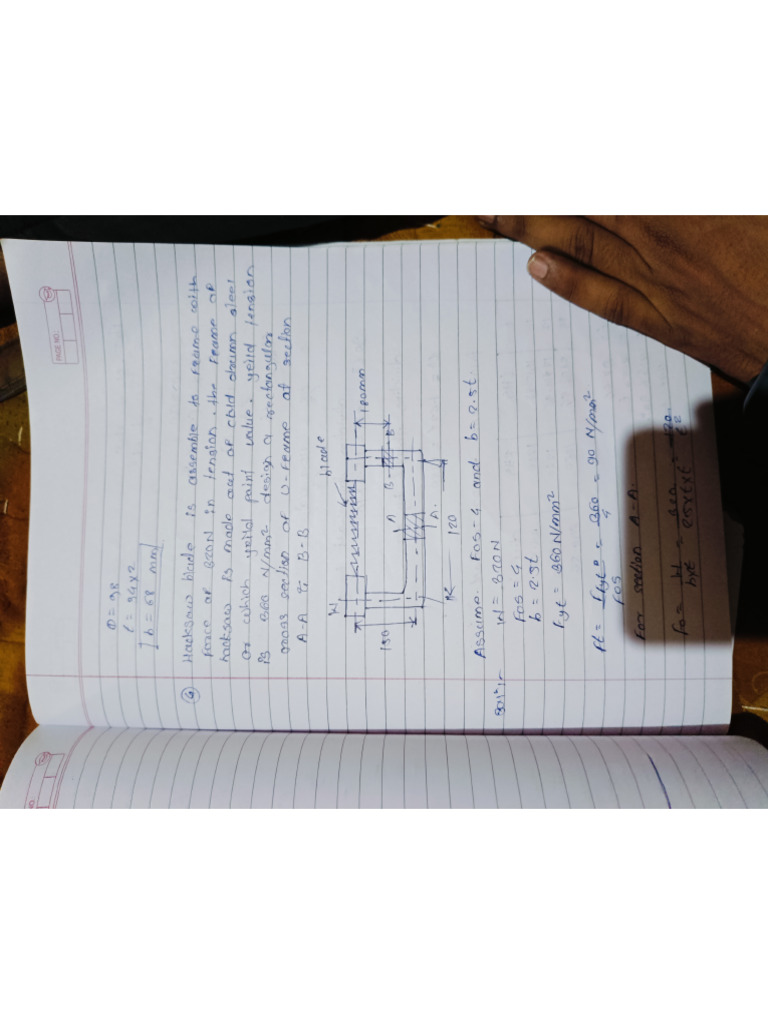 PAGE NO.
θ = 98
l = 34x2
b = 68 mm
(4) Hacksaw blade is assemble to Frame with
Force of 320N in tension. the Frame of
hacksaw is made out of cold drawn steel
or which yeild point value. yeild tension
is 360 N/mm² design a rectangular
cross section of U-Frame at section
A-A & B-B
blade
W
100mm
150
A
B
B
A.
120
Assume FOS=4 and b=2.5t.
W = 320N
FOS = 4
b = 2.5t
Fyt = 360 N/mm²
Ft = Fyt / FOS = 360 / 4 = 90 N/mm²
For section A-A.
W / bxt